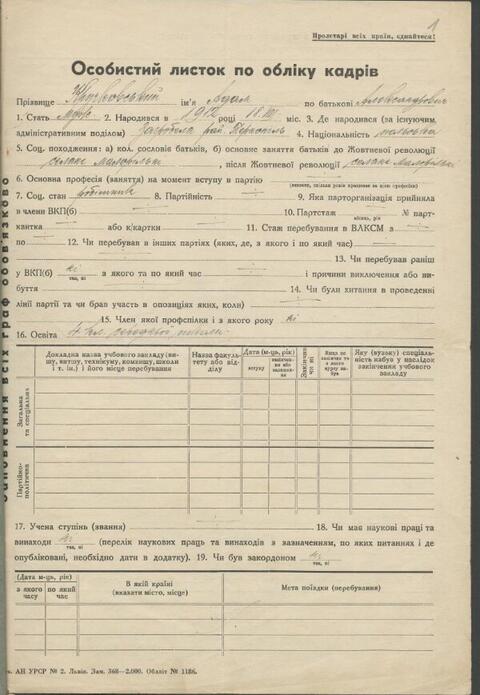 1
Пролетарі всіх країн, єднайтеся!
Особистий листок по обліку кадрів
Прізвище ім'я Адам по батькові Александрович
1. Стать муж. 2. Народився в 1912 році 18.III міс. 3. Де народився (за існуючим
адміністративним поділом) Загробела рай. Тернопіль 4. Національність польська
5. Соц. походження: а) кол. сословіє батьків, б) основне заняття батьків до Жовтневої революції
селяне малорільні, після Жовтневої революції селяне малорільні
6. Основна професія (заняття) на момент вступу в партію
(вкажіть, скільки років працював за цією професією)
7. Соц. стан робітник 8. Партійність 9. Яка парторганізація прийняла
в члени ВКП(б) 10. Партстаж № парт-
місяць, рік
квитка або к/картки 11. Стаж перебування в ВЛКСМ з
по 12. Чи перебував в інших партіях (яких, де, з якого і по який час)
13. Чи перебував раніш
у ВКП(б) ні з якого та по який час і причини виключення або ви-
так, ні
буття 14. Чи були хитання в проведенні
лінії партії та чи брав участь в опозиціях яких, коли)
15. Член якої профспілки і з якого року ні
16. Освіта 7 кл.
Докладна назва учбового закладу (ви-
шу, втишу, технікуму, комвишу, школи
і т. ін.) і його місце перебування)
Назва факуль-
тету або від-
ділу
Дата (м-ць, рік)
вступу
закінчен-
ня або
залишен-
ня
Закінчив
чи ні
Якщо не
закінчив то
з якого
курсу ви-
був
Яку (вузьку) спеціаль-
ність набув у наслідок
закінчення учбового
закладу
Загальна
та спеціальна
Партійно-
політична
17. Учена ступінь (звання) 18. Чи має наукові праці та
винаходи ні (перелік наукових праць та винаходів з зазначенням, по яких питаннях і де
так, ні
опубліковані, необхідно дати в додатку). 19. Чи був закордоном ні
так, ні
(Дата м-ць, рік)
з якого
часу
по який
час
В якій країні
(вказати місто, місце)
Мета поїздки (перебування)
АН УРСР № 2. Львів. Зам. 368—2.000. Обліт № 1186.
всіх граф обов'язково